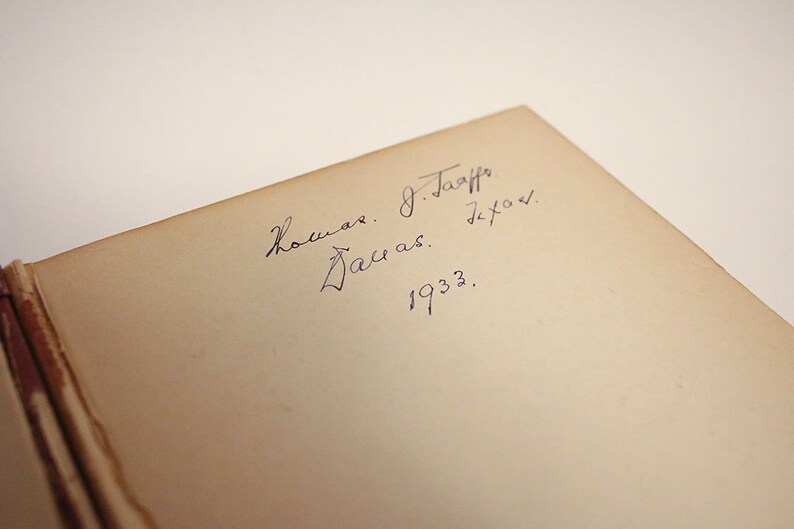 Thomas. J. Taaffe.
Dallas. Texas.
1933.